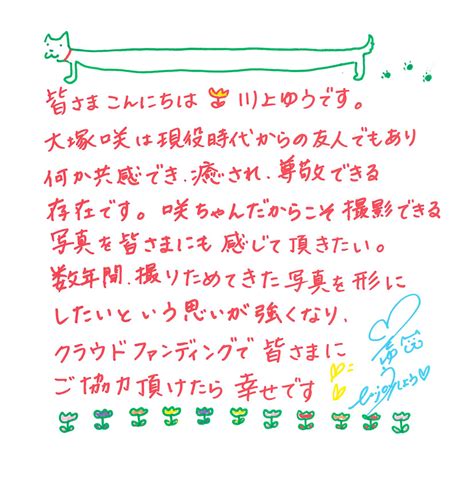 皆さまこんにちは 川上ゆうです。
大塚咲は現役時代からの友人でもあり
何か共感でき、癒され、尊敬できる
存在です。咲ちゃんだからこそ撮影できる
写真を皆さまにも感じて頂きたい。
数年間、撮りためてきた写真を形に
したいという思いが強くなり、
クラウドファンディングで皆さまに
ご協力頂けたら幸せです